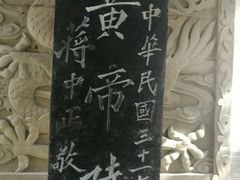 中華民國三十一
黃帝陵
蔣中正敬